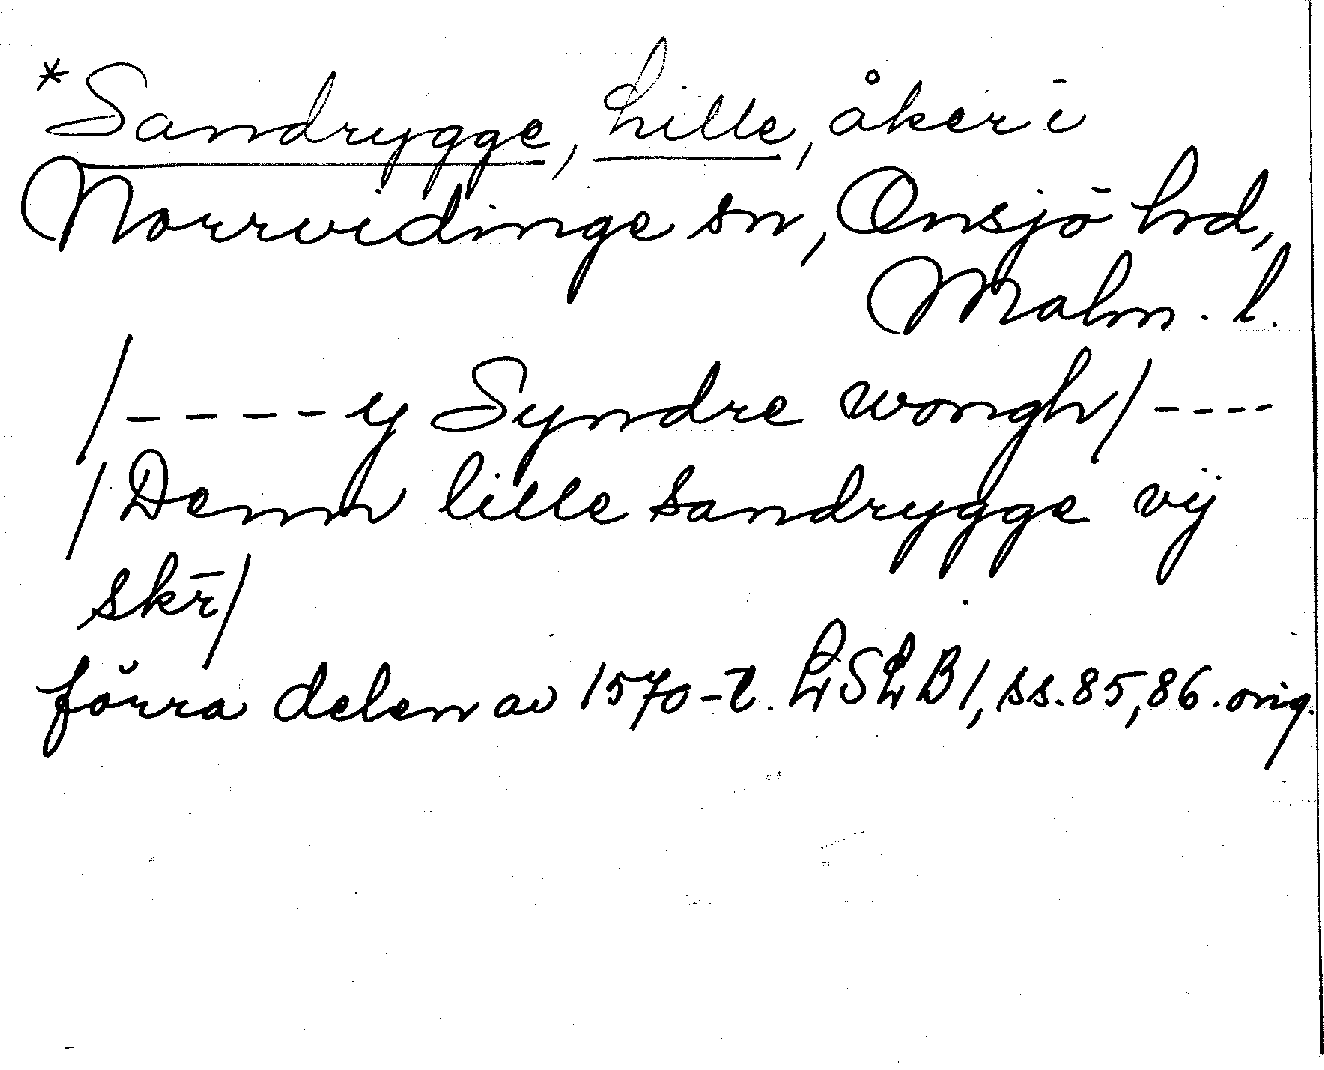 *Sandrygge, Lille, åker i
Norrvidinge sn, Onsjö hd,
Malm. l.
/- - - - y Syndre wongh/- - - -
/Denn lille sandrygge vij
skr̄/
förra delen av 1570-t. LSLB1, ss. 85, 86. orig.